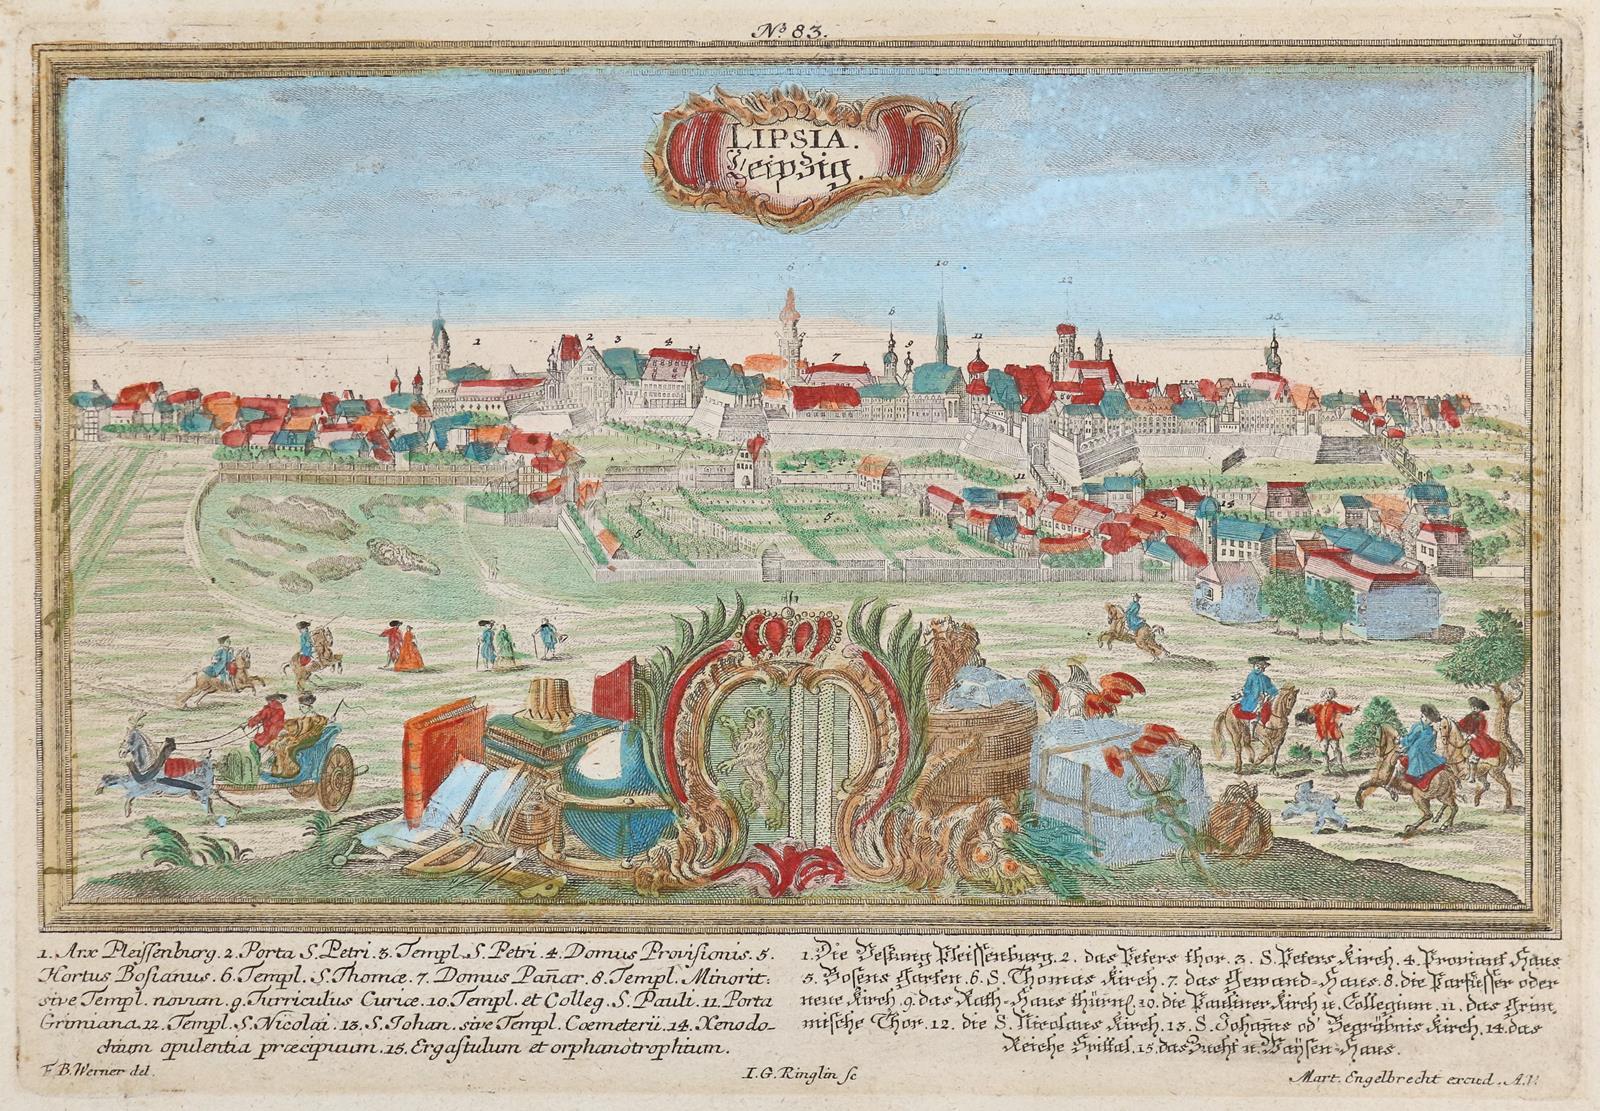 No. 83.
LIPSIA.
Leipzig.
1
2
3
4
6
7
6
9
10
11
12
13.
5
5
11
14
15
1. Arx Pleiſsenburg. 2. Porta S. Petri. 3. Templ. S. Petri. 4. Domus Proviſionis. 5.
Hortus Boſianus. 6. Templ. S. Thomæ. 7. Domus Pan̄ar. 8. Templ. Minorit:
sive Templ. novum. 9. Turriculus Curiæ. 10. Templ. et Colleg. S. Pauli. 11. Porta
Grimiana. 12. Templ. S. Nicolai. 13. S. Johan. sive Templ. Coemeterii. 14. Xenodo-
chium opulentia præcipuum. 15. Ergaſtulum et orphanotrophium.
1. Die Vestung Pleiſsenburg. 2. das Peters thor. 3. S. Peters Kirch. 4. Proviant Haus.
5. Bosens Garten. 6. S. Thomas Kirch. 7. das Gewand-Haus. 8. die Parfüsser oder
neue Kirch. 9. das Rath-Haus thürnl. 10. die Pauliner Kirch u. Collegium. 11. das Grim-
mische Thor. 12. die S. Nicolaus Kirch. 13. S. Johan̄s od' Begräbnis Kirch. 14. das
Reiche Spittal. 15. das Zucht u. Waÿsen-Haus.
F. B. Werner del.
I. G. Ringlin ſc
Mart. Engelbrecht excud. A.V.